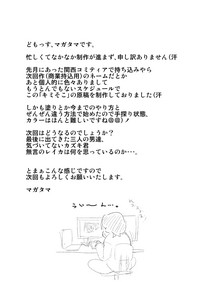 どもっす、マガタマです。
忙しくてなかなか制作が進まず、申し訳ありません(汗
先月にあった関西コミティアで持ち込みやら
次回作(商業持込用)のネームだとか
あと個人的に色々ありまして
もうとんでもないスケジュールで
この「キミそこ」の原稿を制作しておりました(汗
しかも塗りとか今までのやり方と
ぜんぜん違う方法で始めたので手探り状態、
カラーはほんと難しいですね@@;)
次回はどうなるのでしょうか?
最後に出てきた三人の男達、
気づいてないカズキ君
無言のレイカは何を思っているのか…。
とまぁこんな感じですので
次回もよろしくお願いします。
マガタマ